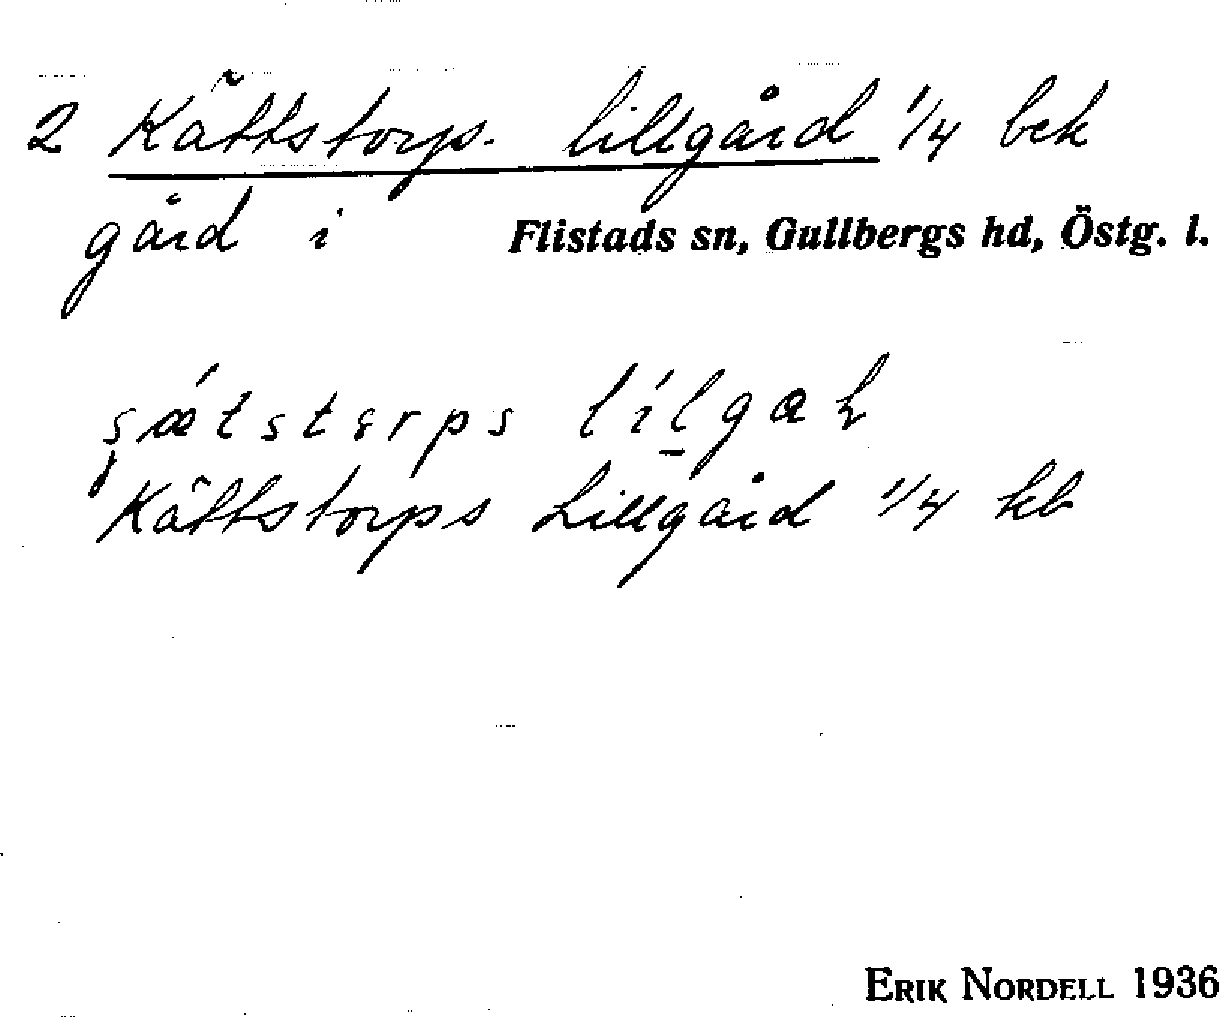 2 Kättstorps. lillgård 1/4 bek
gård i Flistads sn, Gullbergs hd, Östg. l.
Kättstorps Lillgård 1/4 kb
ERIK NORDELL 1936